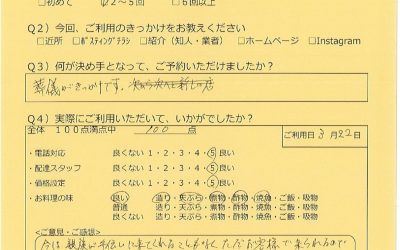 □初めて ☑2～5回 □6回以上
Q2）今回、ご利用のきっかけをお教えください
□近所 □ﾎﾟｽﾃｨﾝｸﾞﾁﾗｼ □紹介（知人・業者） □ホームページ □Instagram
Q3）何が決め手となって、ご予約いただけましたか？
葬儀がきっかけです。
Q4）実際にご利用いただいて、いかがでしたか？
全体 100点満点中 100 点
ご利用日 3月22日
・電話対応 良くない 1・2・3・4・5 良い
・配達スタッフ 良くない 1・2・3・4・5 良い
・価格設定 良くない 1・2・3・4・5 良い
・お料理の味 良い 造り・天ぷら・煮物・酢物・焼魚・ご飯・吸物
普通 造り・天ぷら・煮物・酢物・焼魚・ご飯・吸物
良くない 造り・天ぷら・煮物・酢物・焼魚・ご飯・吸物
＜ご意見・ご感想＞